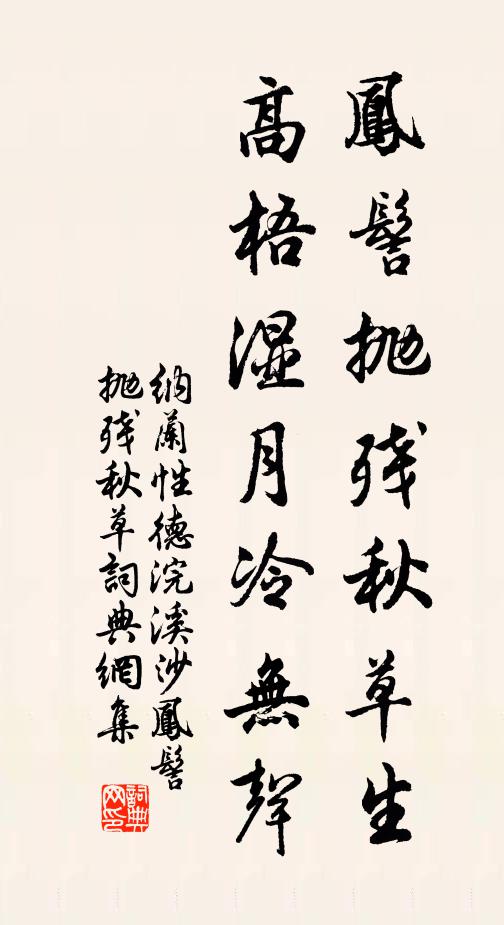 鳳髻抛残秋草生
高梧湿月冷無聲
納蘭性德浣溪沙鳳髻
抛残秋草詞典網集
詞典
网印